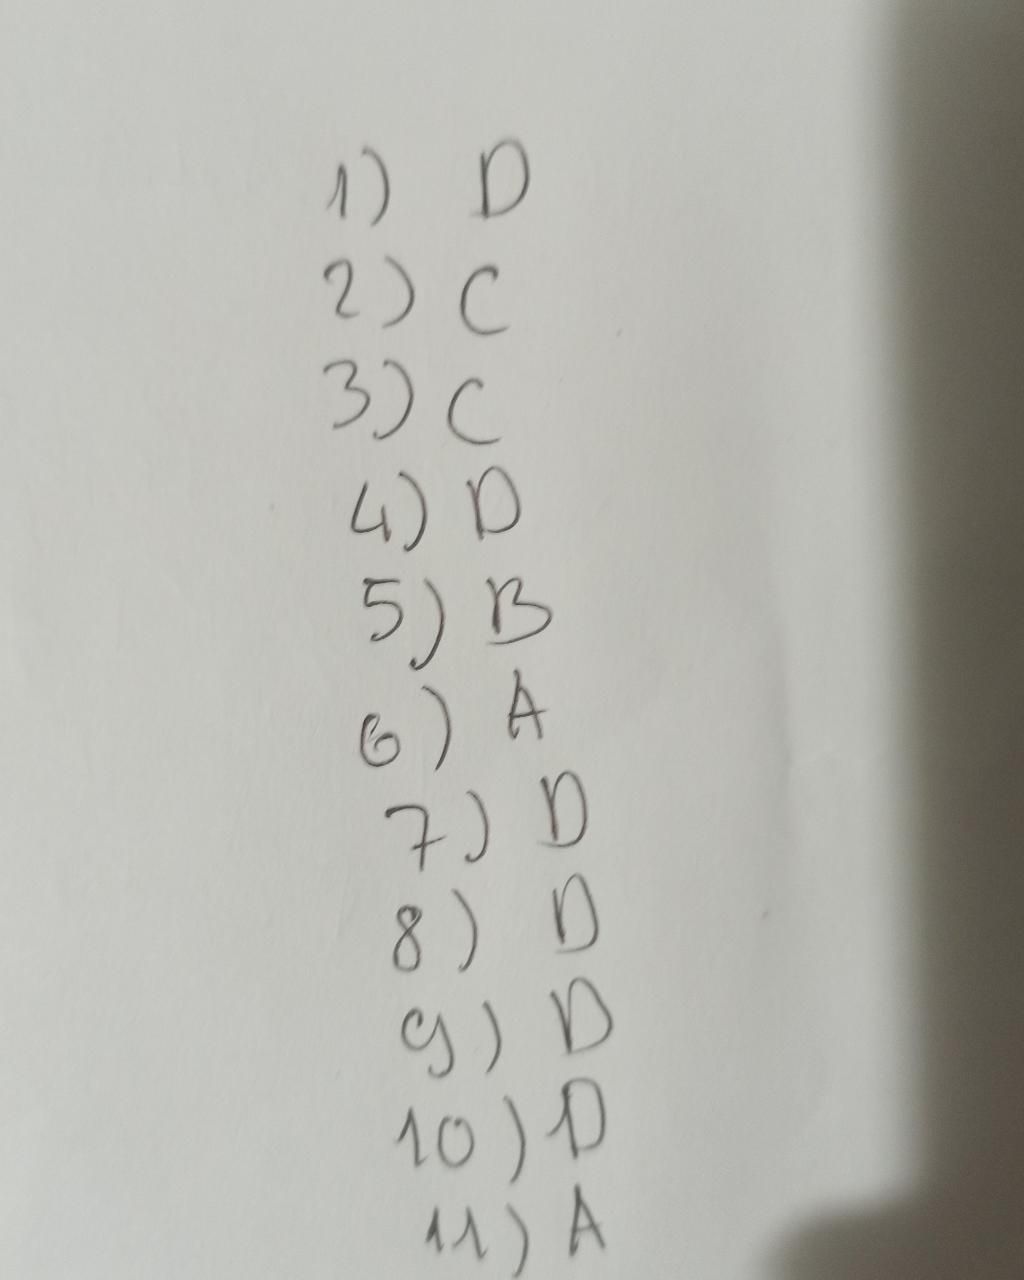 1) D
2) C
3) C
4) D
5) B
6) A
7) D
8) D
9) D
10) D
11) A